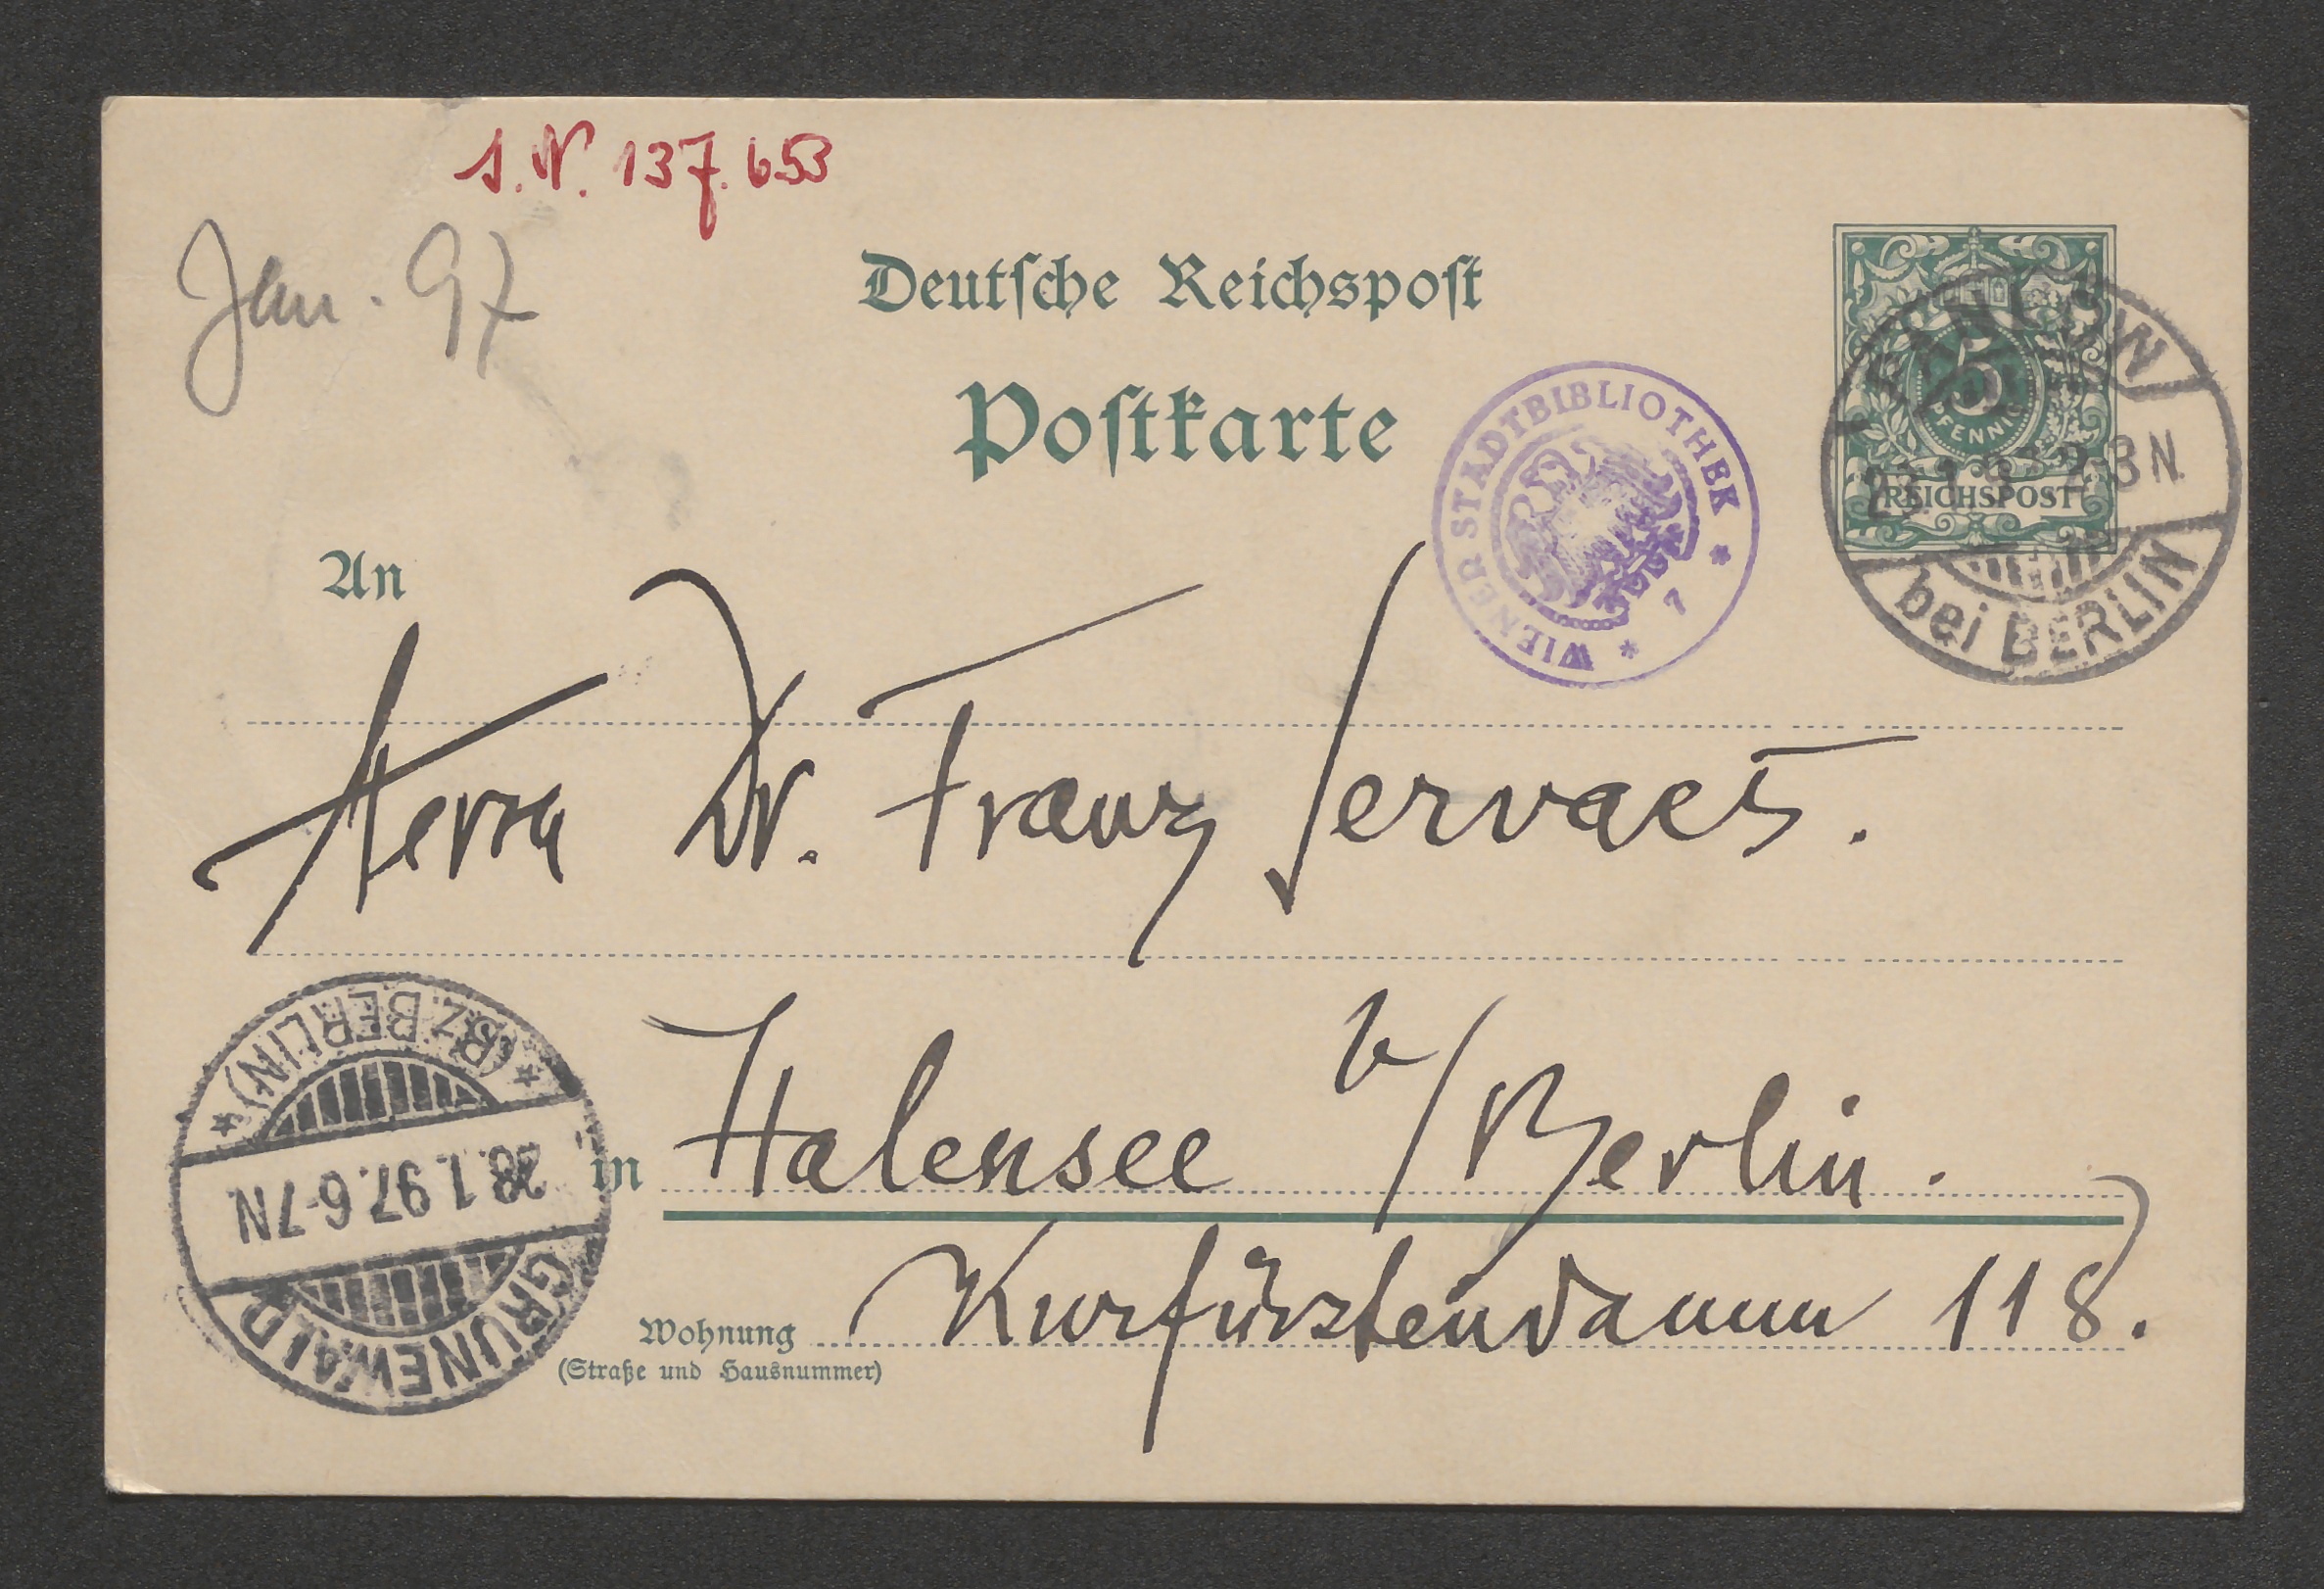 J. N. 137.653
Jan. 97
Deutsche Reichspost
Postkarte
WIENER STADTBIBLIOTHEK * 7 *
5
PFENNIG
REICHSPOST
PANKOW
2-3N
bei BERLIN
An
Herrn Dr. Franz Servaes.
in Halensee b/Berlin.
Wohnung Kurfürstendamm 118.
(Straße und Hausnummer)
GRUNEWALD
28.1.97.6-7N
* (BZ. BERLIN) *